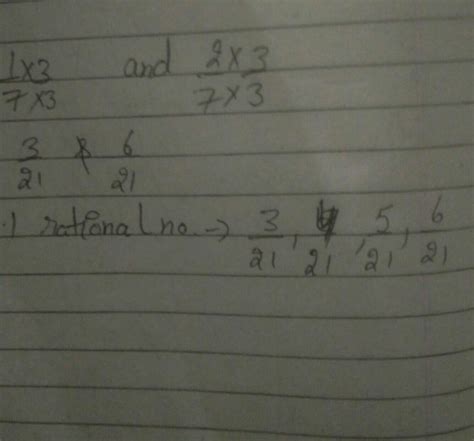 1×3/7×3 and 2×3/7×3
3/21 & 6/21
.1 rational no. → 3/21, 4/21, 5/21, 6/21